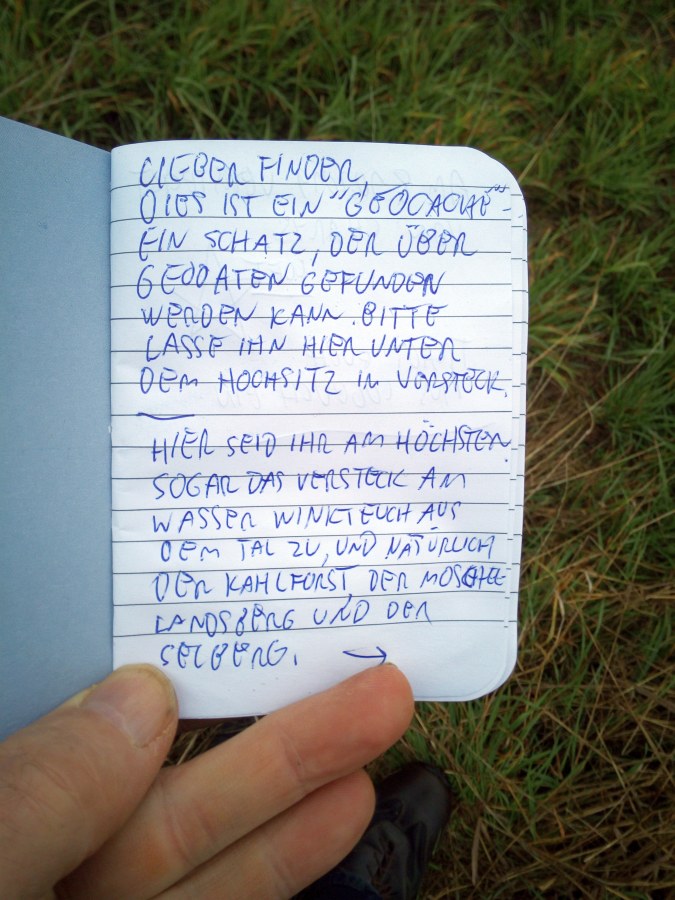 LIEBER FINDER,
DIES IST EIN "GEOCACHE" -
EIN SCHATZ, DER ÜBER
GEODATEN GEFUNDEN
WERDEN KANN. BITTE
LASSE IHN HIER UNTER
DEM HOCHSITZ IM VERSTECK.
HIER SEID IHR AM HÖCHSTEN.
SOGAR DAS VERSTECK AM
WASSER WINKT EUCH AUS
DEM TAL ZU, UND NATÜRLICH
DER KAHLFORST, DER MOSCHEL
LANDSBERG UND DER
SELBERG. →